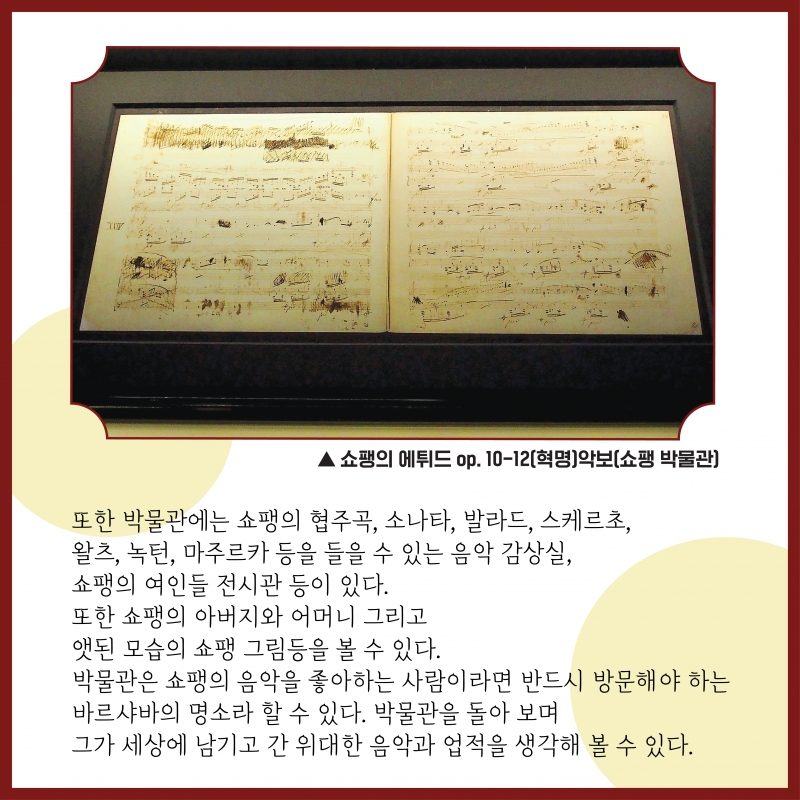 ▲ 쇼팽의 에튀드 op. 10-12(혁명)악보(쇼팽 박물관)
또한 박물관에는 쇼팽의 협주곡, 소나타, 발라드, 스케르초,
왈츠, 녹턴, 마주르카 등을 들을 수 있는 음악 감상실,
쇼팽의 여인들 전시관 등이 있다.
또한 쇼팽의 아버지와 어머니 그리고
앳된 모습의 쇼팽 그림등을 볼 수 있다.
박물관은 쇼팽의 음악을 좋아하는 사람이라면 반드시 방문해야 하는
바르샤바의 명소라 할 수 있다. 박물관을 돌아 보며
그가 세상에 남기고 간 위대한 음악과 업적을 생각해 볼 수 있다.